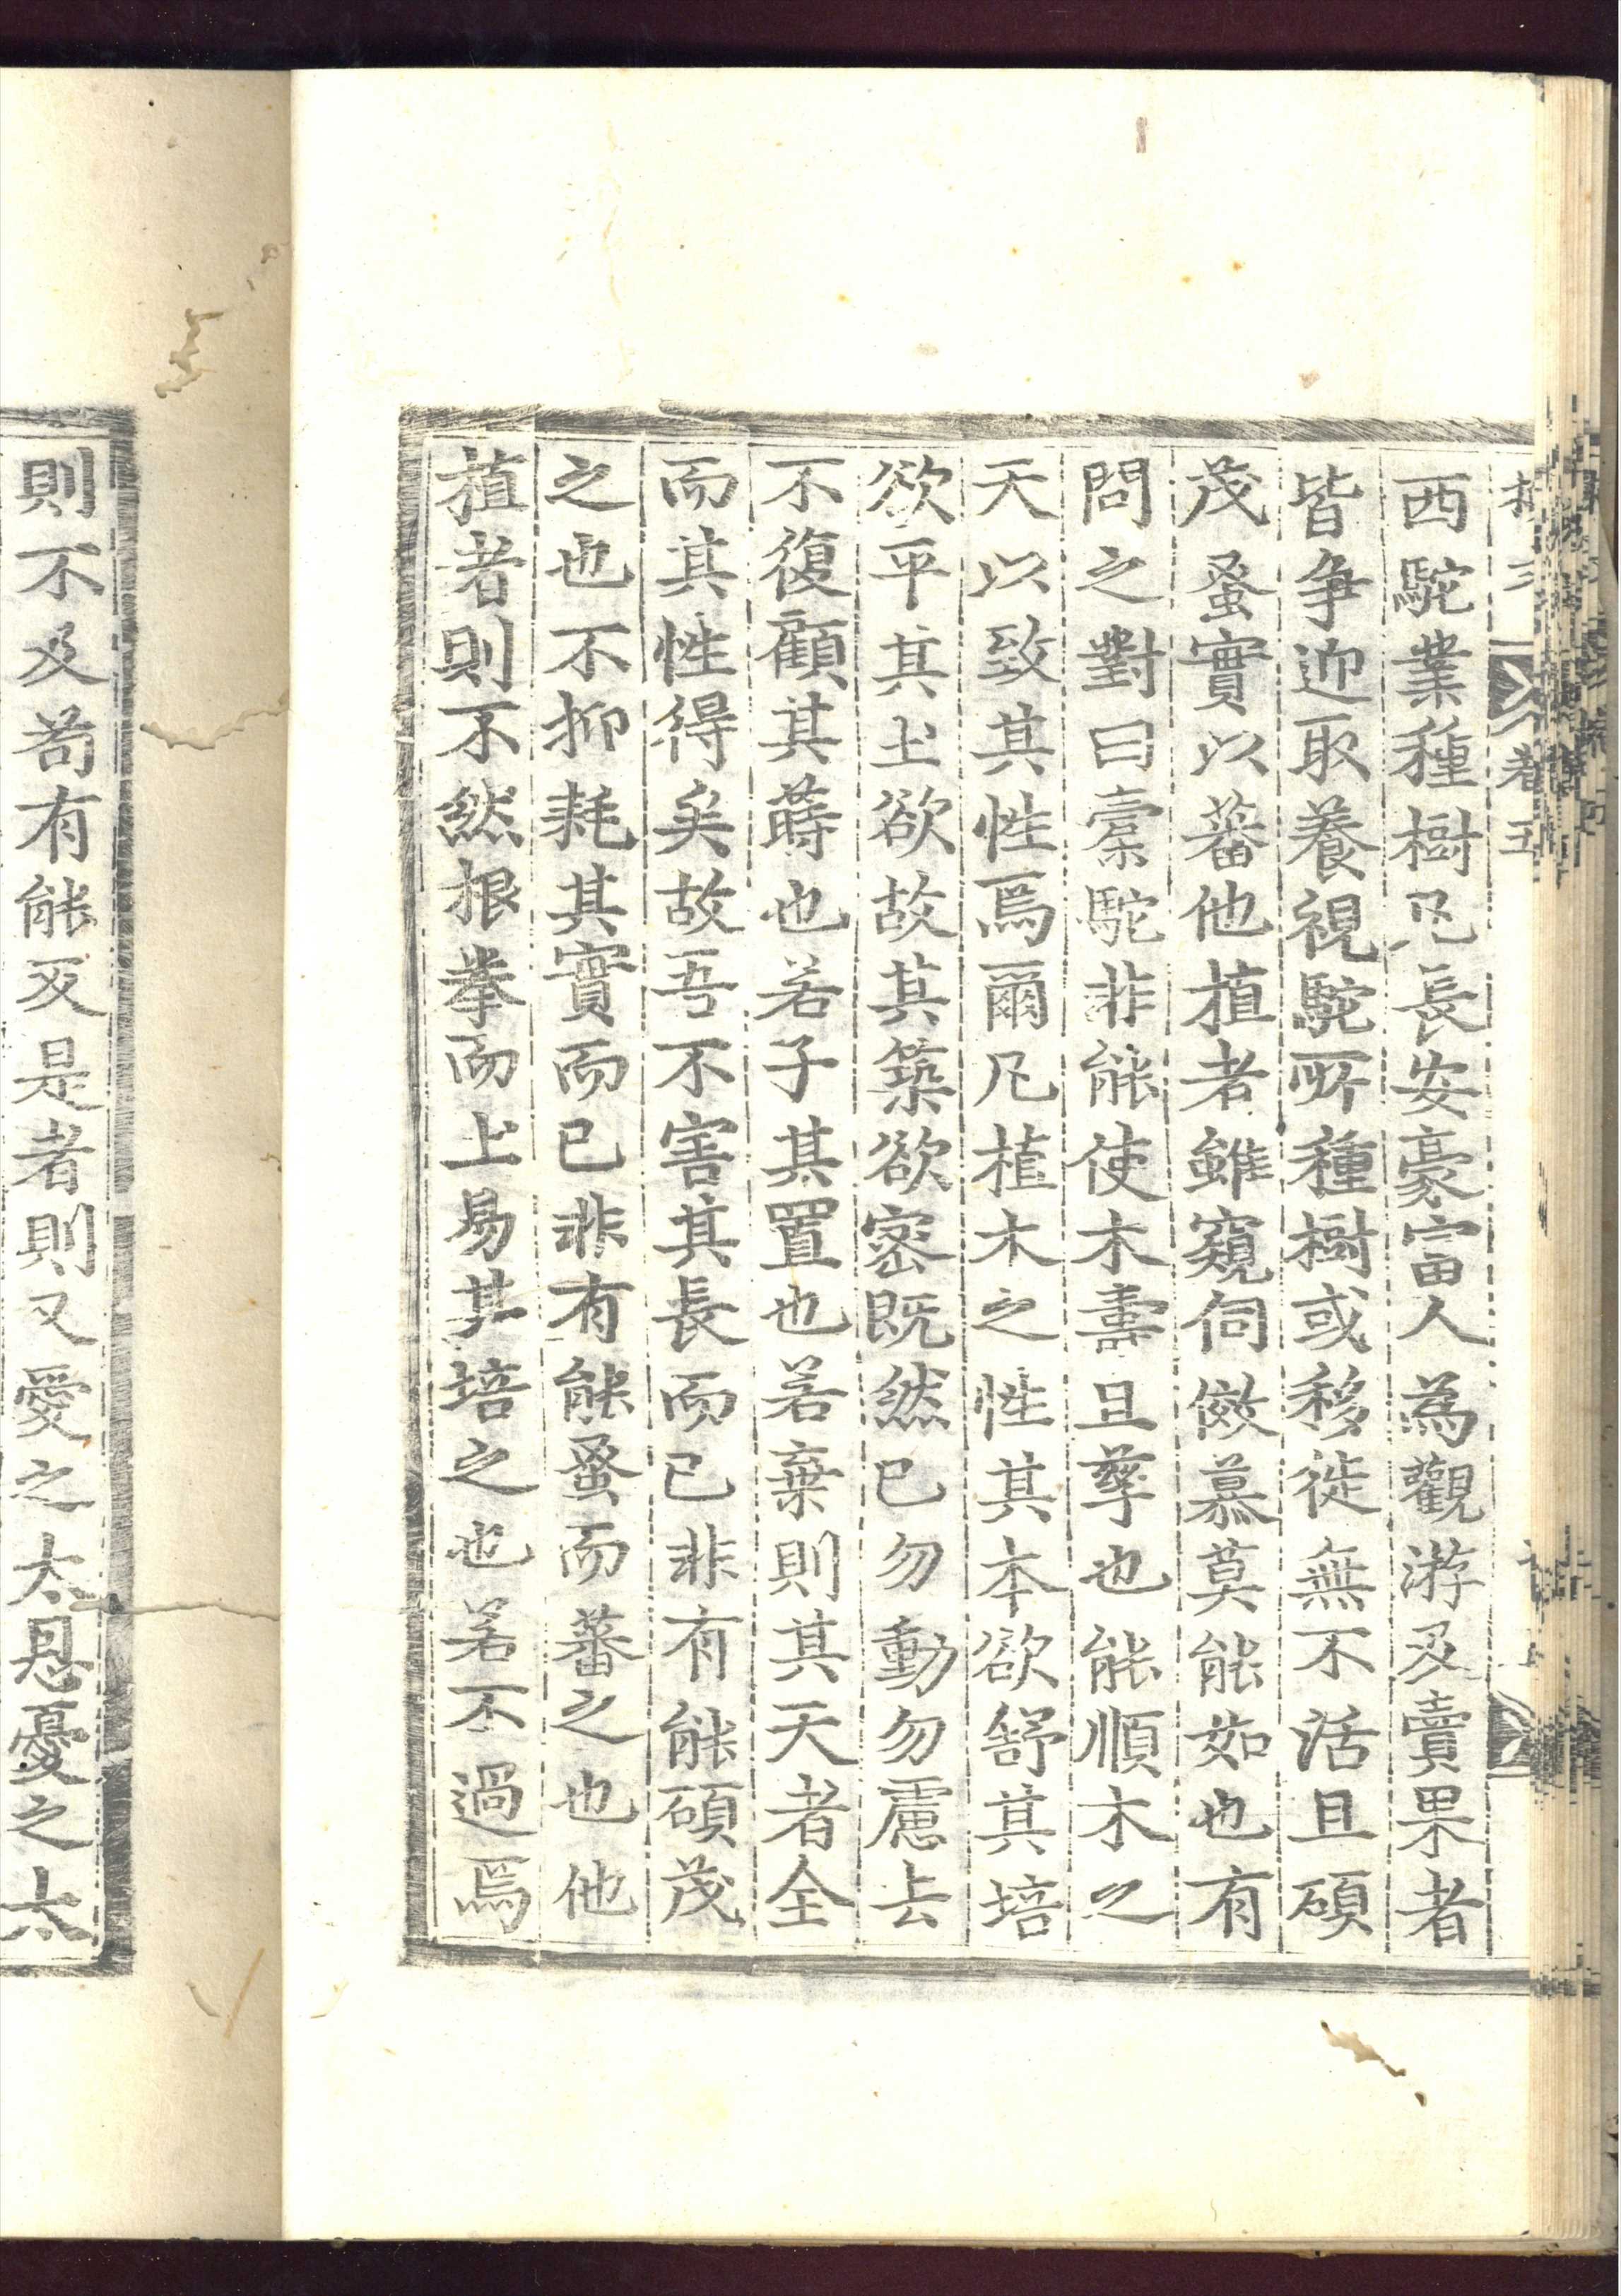 西駝業種樹凡長安豪富人為觀游及賣果者
皆争迎取養視駝所種樹或移徙無不活且碩
茂蚤實以蕃他植者雖窺伺傚慕莫能如也有
問之對曰橐駝非能使木壽且孳也能順木之
天以致其性焉爾凡植木之性其本欲舒其培
欲平其土欲故其築欲密既然已勿動勿慮去
不復顧其蒔也若子其置也若棄則其天者全
而其性得矣故吾不害其長而已非有能碩茂
之也不抑耗其實而已非有能蚤而蕃之也他
植者則不然根拳而土易其培之也若不過焉
則不及苟有能反是者則又愛之太恩憂之太